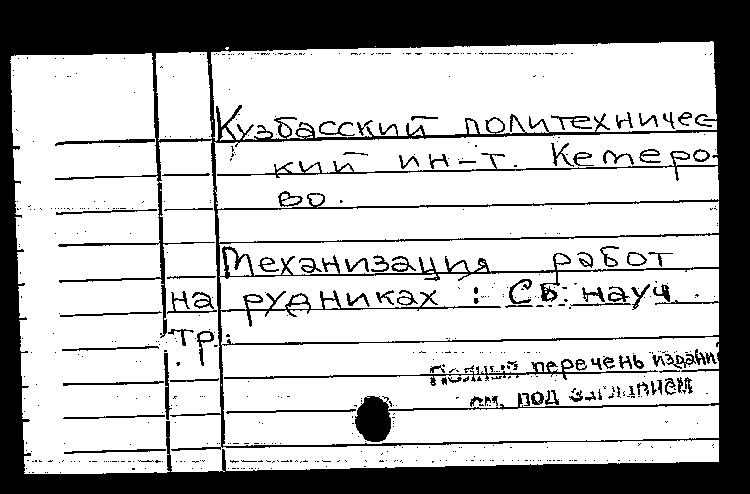 Кузбасский политехничес-
кий ин-т. Кемеро-
во.
Механизация работ
на рудниках : Сб. науч.
тр.
Полный перечень изданий
см. под заглавием